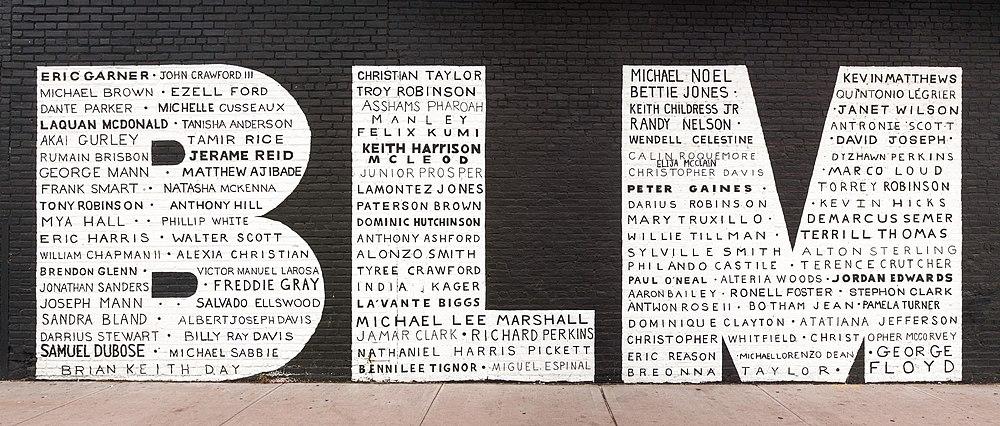 ERIC GARNER · JOHN CRAWFORD III
MICHAEL BROWN · EZELL FORD
DANTE PARKER · MICHELLE CUSSEAUX
LAQUAN MCDONALD · TANISHA ANDERSON
AKAI GURLEY TAMIR RICE
RUMAIN BRISBON JERAME REID
GEORGE MANN · MATTHEW AJIBADE
FRANK SMART · NATASHA MCKENNA
TONY ROBINSON · ANTHONY HILL
MYA HALL · · PHILLIP WHITE
ERIC HARRIS · WALTER SCOTT
WILLIAM CHAPMAN II · ALEXIA CHRISTIAN
BRENDON GLENN · VICTOR MANUEL LAROSA
JONATHAN SANDERS · FREDDIE GRAY
JOSEPH MANN · · SALVADO ELLSWOOD
SANDRA BLAND · ALBERT JOSEPH DAVIS
DARRIUS STEWART · BILLY RAY DAVIS
SAMUEL DUBOSE · MICHAEL SABBIE
BRIAN KEITH DAY
CHRISTIAN TAYLOR
TROY ROBINSON
ASSHAMS PHAROAH
MANLEY
FELIX KUMI
KEITH HARRISON
MCLEOD
JUNIOR PROSPER
LAMONTEZ JONES
PATERSON BROWN
DOMINIC HUTCHINSON
ANTHONY ASHFORD
ALONZO SMITH
TYREE CRAWFORD
INDIA KAGER
LA'VANTE BIGGS
MICHAEL LEE MARSHALL
JAMAR CLARK · RICHARD PERKINS
NATHANIEL HARRIS PICKETT
BENNI LEE TIGNOR · MIGUEL ESPINAL
MICHAEL NOEL KEVIN MATTHEWS
BETTIE JONES · QUINTONIO LÉGRIER
KEITH CHILDRESS JR · JANET WILSON
RANDY NELSON · ANTRONIE SCOTT
WENDELL CELESTINE · DAVID JOSEPH ·
CALIN ROQUEMORE DYZHAWN PERKINS
ELIJA MCCLAIN
CHRISTOPHER DAVIS · MARCO LOUD
PETER GAINES · TORREY ROBINSON
DARIUS ROBINSON · KEVIN HICKS
MARY TRUXILLO · DEMARCUS SEMER
WILLIE TILLMAN · TERRILL THOMAS
SYLVILLE SMITH ALTON STERLING
PHILANDO CASTILE · TERENCE CRUTCHER
PAUL O'NEAL · ALTERIA WOODS · JORDAN EDWARDS
AARON BAILEY · RONELL FOSTER · STEPHON CLARK
ANTWON ROSE II · BOTHAM JEAN · PAMELA TURNER
DOMINIQUE CLAYTON · ATATIANA JEFFERSON
CHRISTOPHER WHITFIELD · CHRISTOPHER MCCORVEY
ERIC REASON · MICHAEL LORENZO DEAN · GEORGE
BREONNA TAYLOR · FLOYD